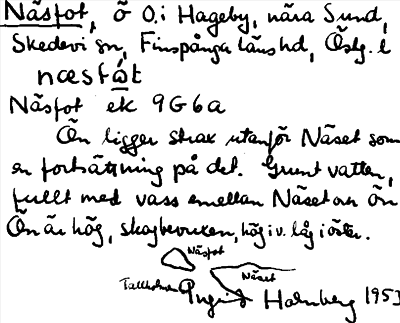 Näsfot, ö O. i Hageby, nära Sund,
Skedevi sn, Finspånga läns hd, Östg. l
næsfåt
Näsfot ek 9G6a
Ön ligger strax utanför Näset som
en fortsättning på det. Grunt vatten,
fullt med vass emellan Näset och ön
Ön är hög, skogbevuxen, hög i v. låg i öster.
Näsfot
Näset
Ingrid Holmberg 1953